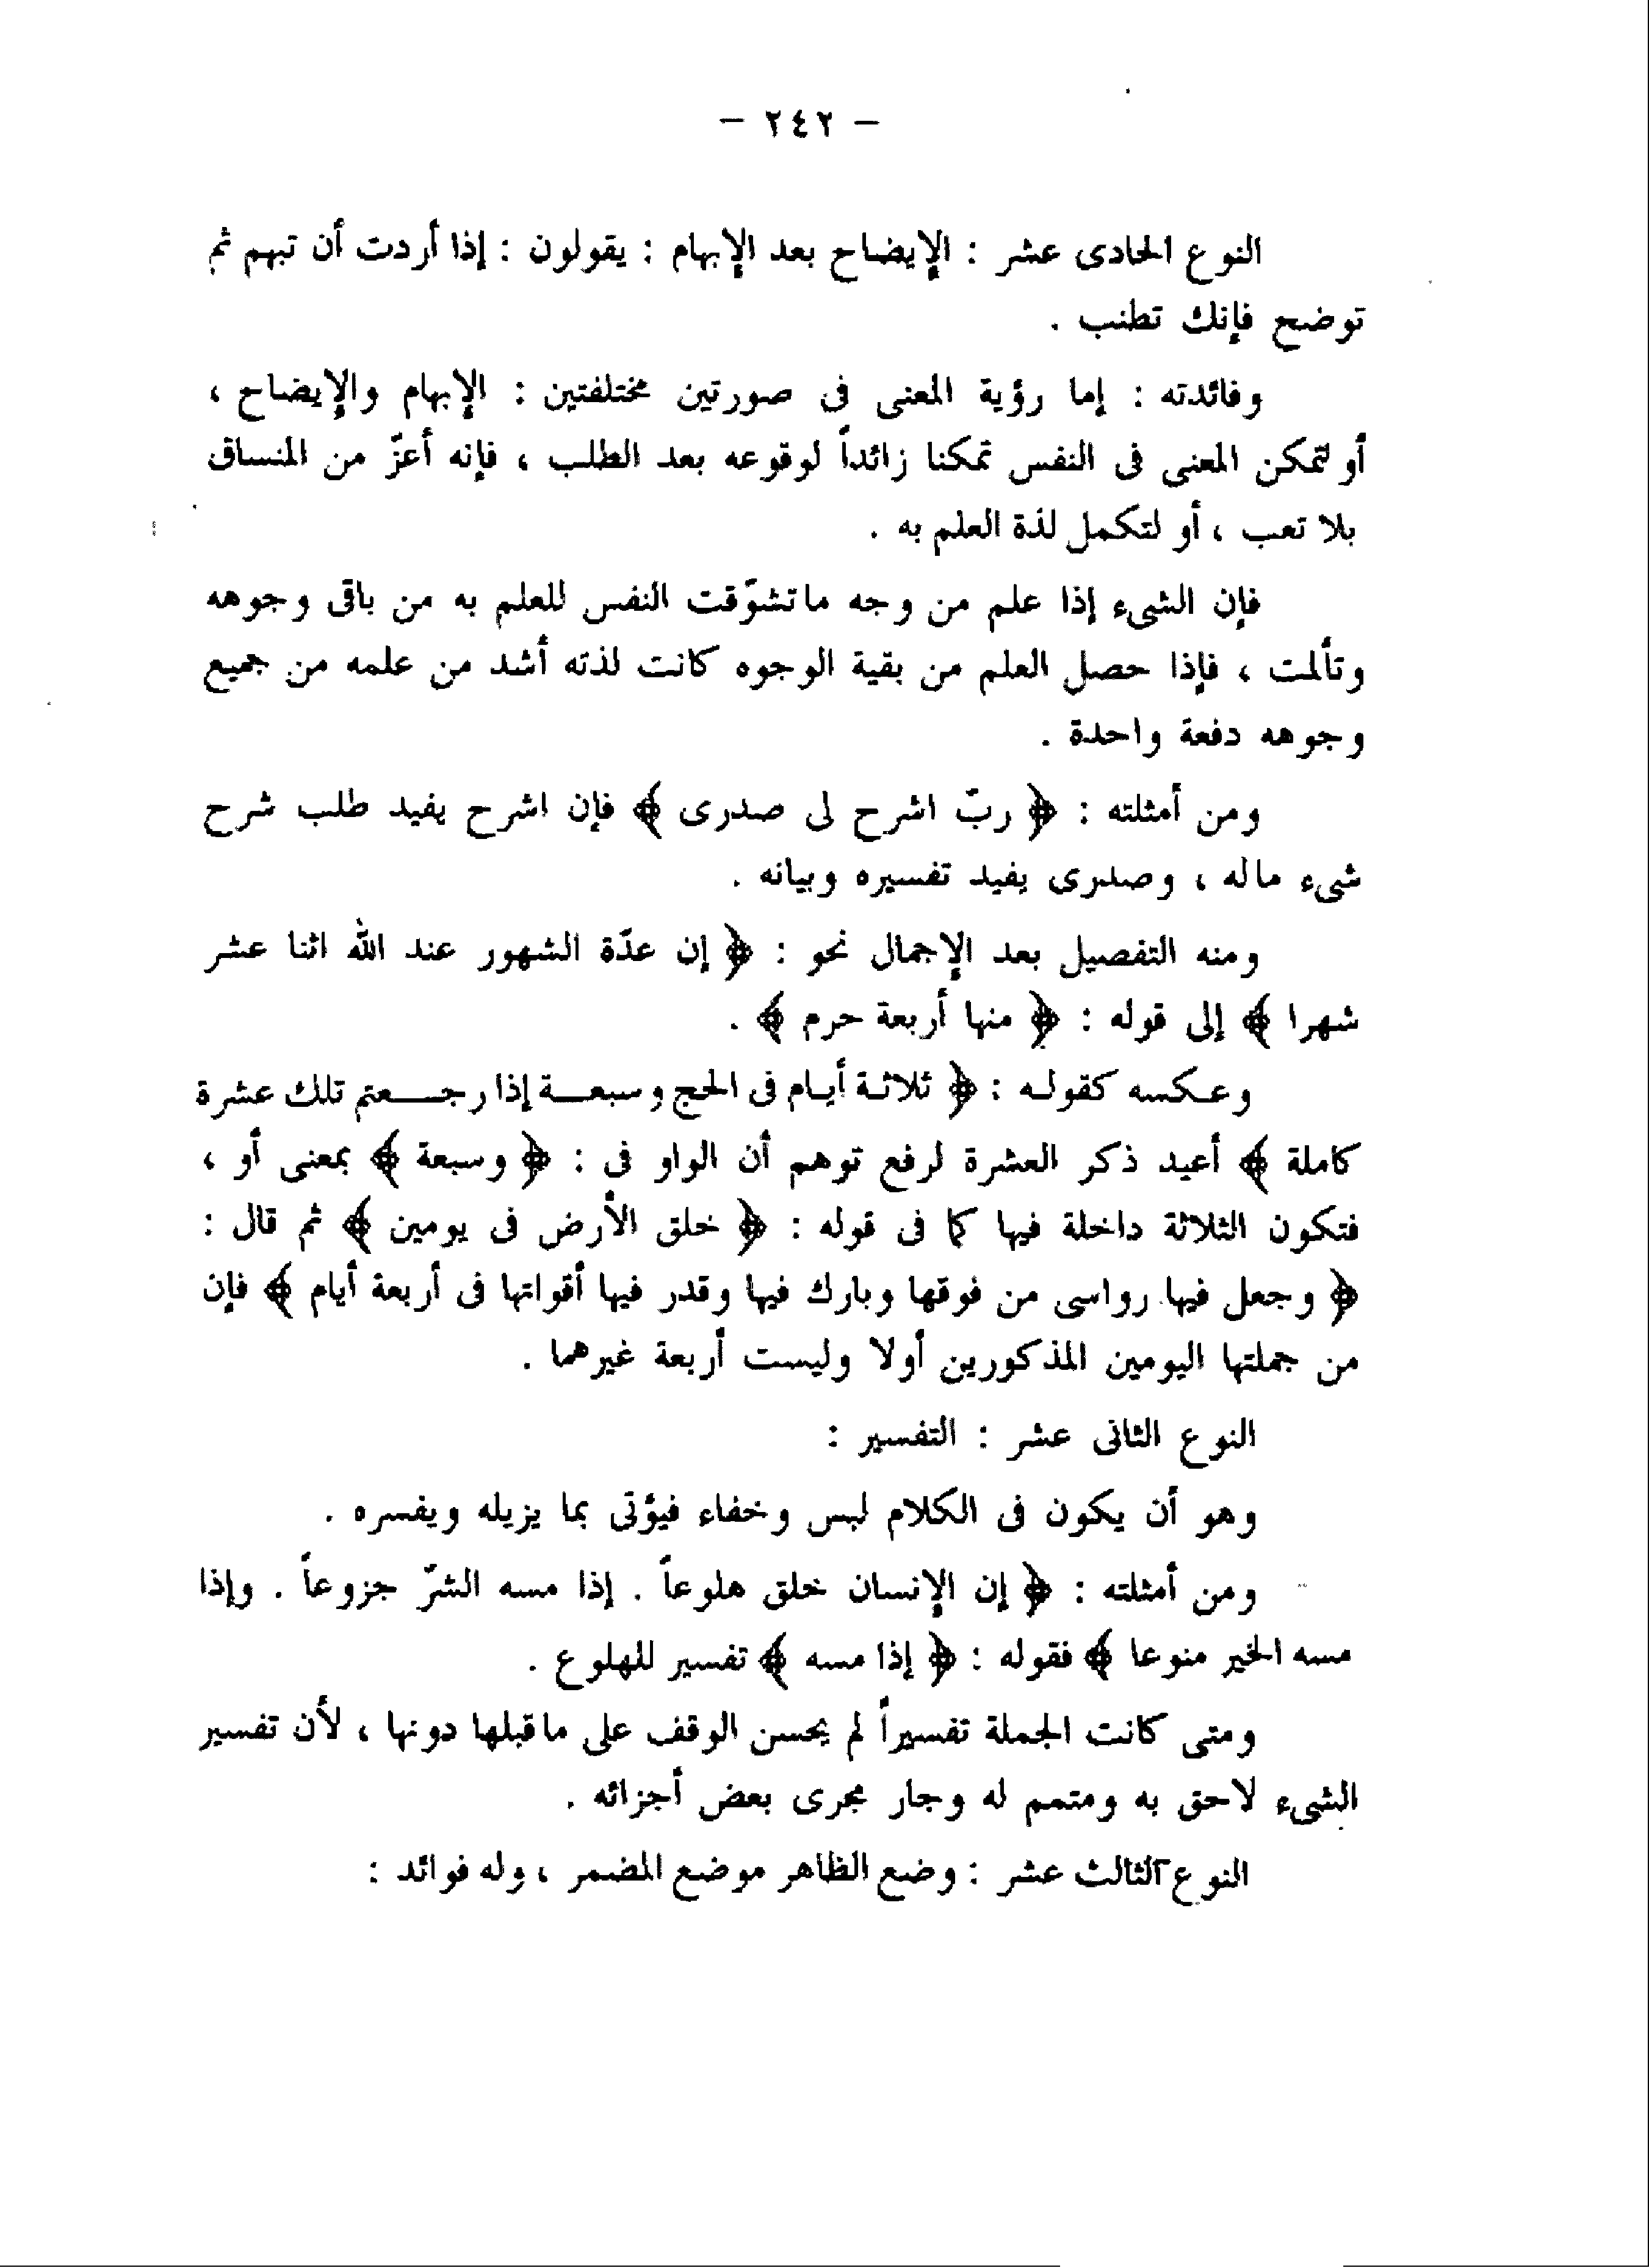 – ٢٤٢ –
النوع الحادى عشر : الإيضاح بعد الإبهام : يقولون : إذا أردت أن تبهم ثم
توضح فإنك تطنب .
وفائدته : إما رؤية المعنى فى صورتين مختلفتين : الإبهام والإيضاح ،
أو لتمكن المعنى فى النفس تمكنا زائداً لوقوعه بعد الطلب ، فإنه أعزّ من المنساق
بلا تعب ، أو لتكمل لذة العلم به .
فإن الشىء إذا علم من وجه ما تشوّقت النفس للعلم به من باقى وجوهه
وتألمت ، فإذا حصل العلم من بقية الوجوه كانت لذته أشد من علمه من جميع
وجوهه دفعة واحدة .
ومن أمثلته : ﴿ ربّ اشرح لى صدرى ﴾ فإن اشرح يفيد طلب شرح
شىء ماله ، وصدرى يفيد تفسيره وبيانه .
ومنه التفصيل بعد الإجمال نحو : ﴿ إن عدّة الشهور عند الله اثنا عشر
شهرا ﴾ إلى قوله : ﴿ منها أربعة حرم ﴾ .
وعكسه كقوله : ﴿ ثلاثة أيام فى الحج وسبعة إذا رجعتم تلك عشرة
كاملة ﴾ أعيد ذكر العشرة لرفع توهم أن الواو فى : ﴿ وسبعة ﴾ بمعنى أو ،
فتكون الثلاثة داخلة فيها كما فى قوله : ﴿ خلق الأرض فى يومين ﴾ ثم قال :
﴿ وجعل فيها رواسى من فوقها وبارك فيها وقدر فيها أقواتها فى أربعة أيام ﴾ فإن
من جملتها اليومين المذكورين أولا وليست أربعة غيرهما .
النوع الثانى عشر : التفسير :
وهو أن يكون فى الكلام لبس وخفاء فيؤتى بما يزيله ويفسره .
ومن أمثلته : ﴿ إن الإنسان خلق هلوعاً . إذا مسه الشرّ جزوعاً . وإذا
مسه الخير منوعا ﴾ فقوله : ﴿ إذا مسه ﴾ تفسير للهلوع .
ومتى كانت الجملة تفسيراً لم يحسن الوقف على ماقبلها دونها ، لأن تفسير
الشىء لاحق به ومتمم له وجار مجرى بعض أجزائه .
النوع الثالث عشر : وضع الظاهر موضع المضمر ، وله فوائد :